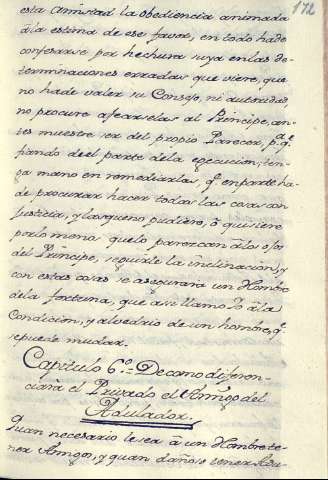 172
esta Amistad la obediencia animada
a la estima de ese favor, en todo hade
confesarse por hechura suya enlas de-
terminaciones erradas que viere, que
no hade valer su Consejo, ni autoridad,
no procure afearselas al Principe, an-
tes muestre ser del propio Parecer, p.ª q.e
fiando deel parte dela egecucion, ten-
ga mano en remediarlas, q.e enparte ha-
de procurar hacer todas las cosas con
Justicia, y las queno pudiere, ò quisiere
porlo menos quelo parezcan àlos ojos
del Principe, seguirle la inclinacion, y
con estas cosas se asegurara un Hombre
dela fortuna, que asi llamo Yo à la
Condicion, y alvedrio de un hombre, q.e
sepuede mudar.
Capitulo 6.º De como diferen-
ciarà el Privado el Amigo del
Adulador.
Quan necesario lesea à un Hombre te-
ner Amigos, y quan dañoso tener Adu-